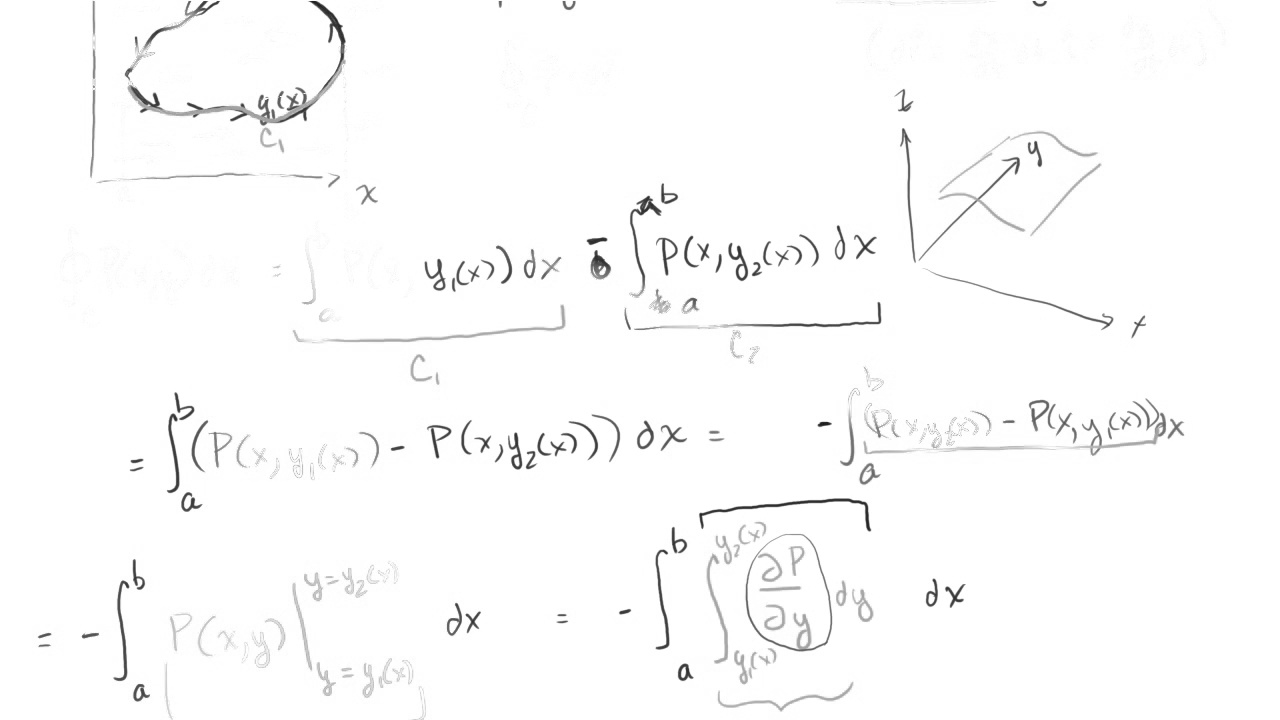 y₁(x)
C₁
x
z
y
x
∮ P(x,y) dx = ∫ₐᵇ P(x, y₁(x)) dx - ∫ₐᵇ P(x, y₂(x)) dx
C₁
C₂
= ∫ₐᵇ (P(x, y₁(x)) - P(x, y₂(x))) dx = - ∫ₐᵇ (P(x, y₂(x)) - P(x, y₁(x))) dx
= - ∫ₐᵇ P(x,y) | y = y₂(x) y = y₁(x) dx = - ∫ₐᵇ ∫ y₁(x) y₂(x) ∂P/∂y dy dx